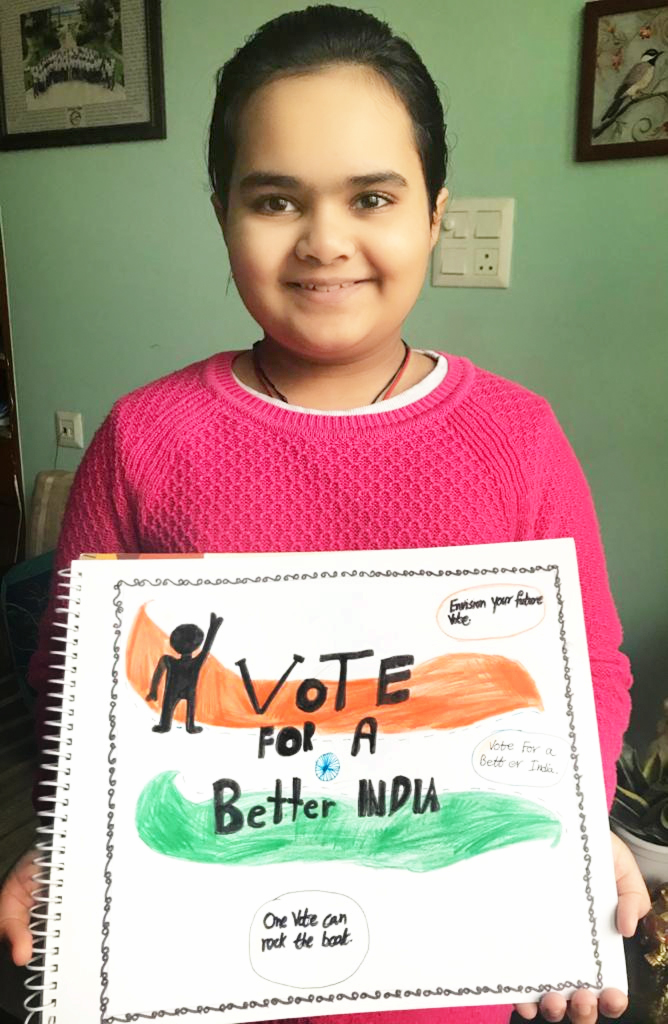 Envision your future
Vote.
VOTE
FOR A
Better INDIA
Vote For a
Better India.
One Vote can
rock the boat.